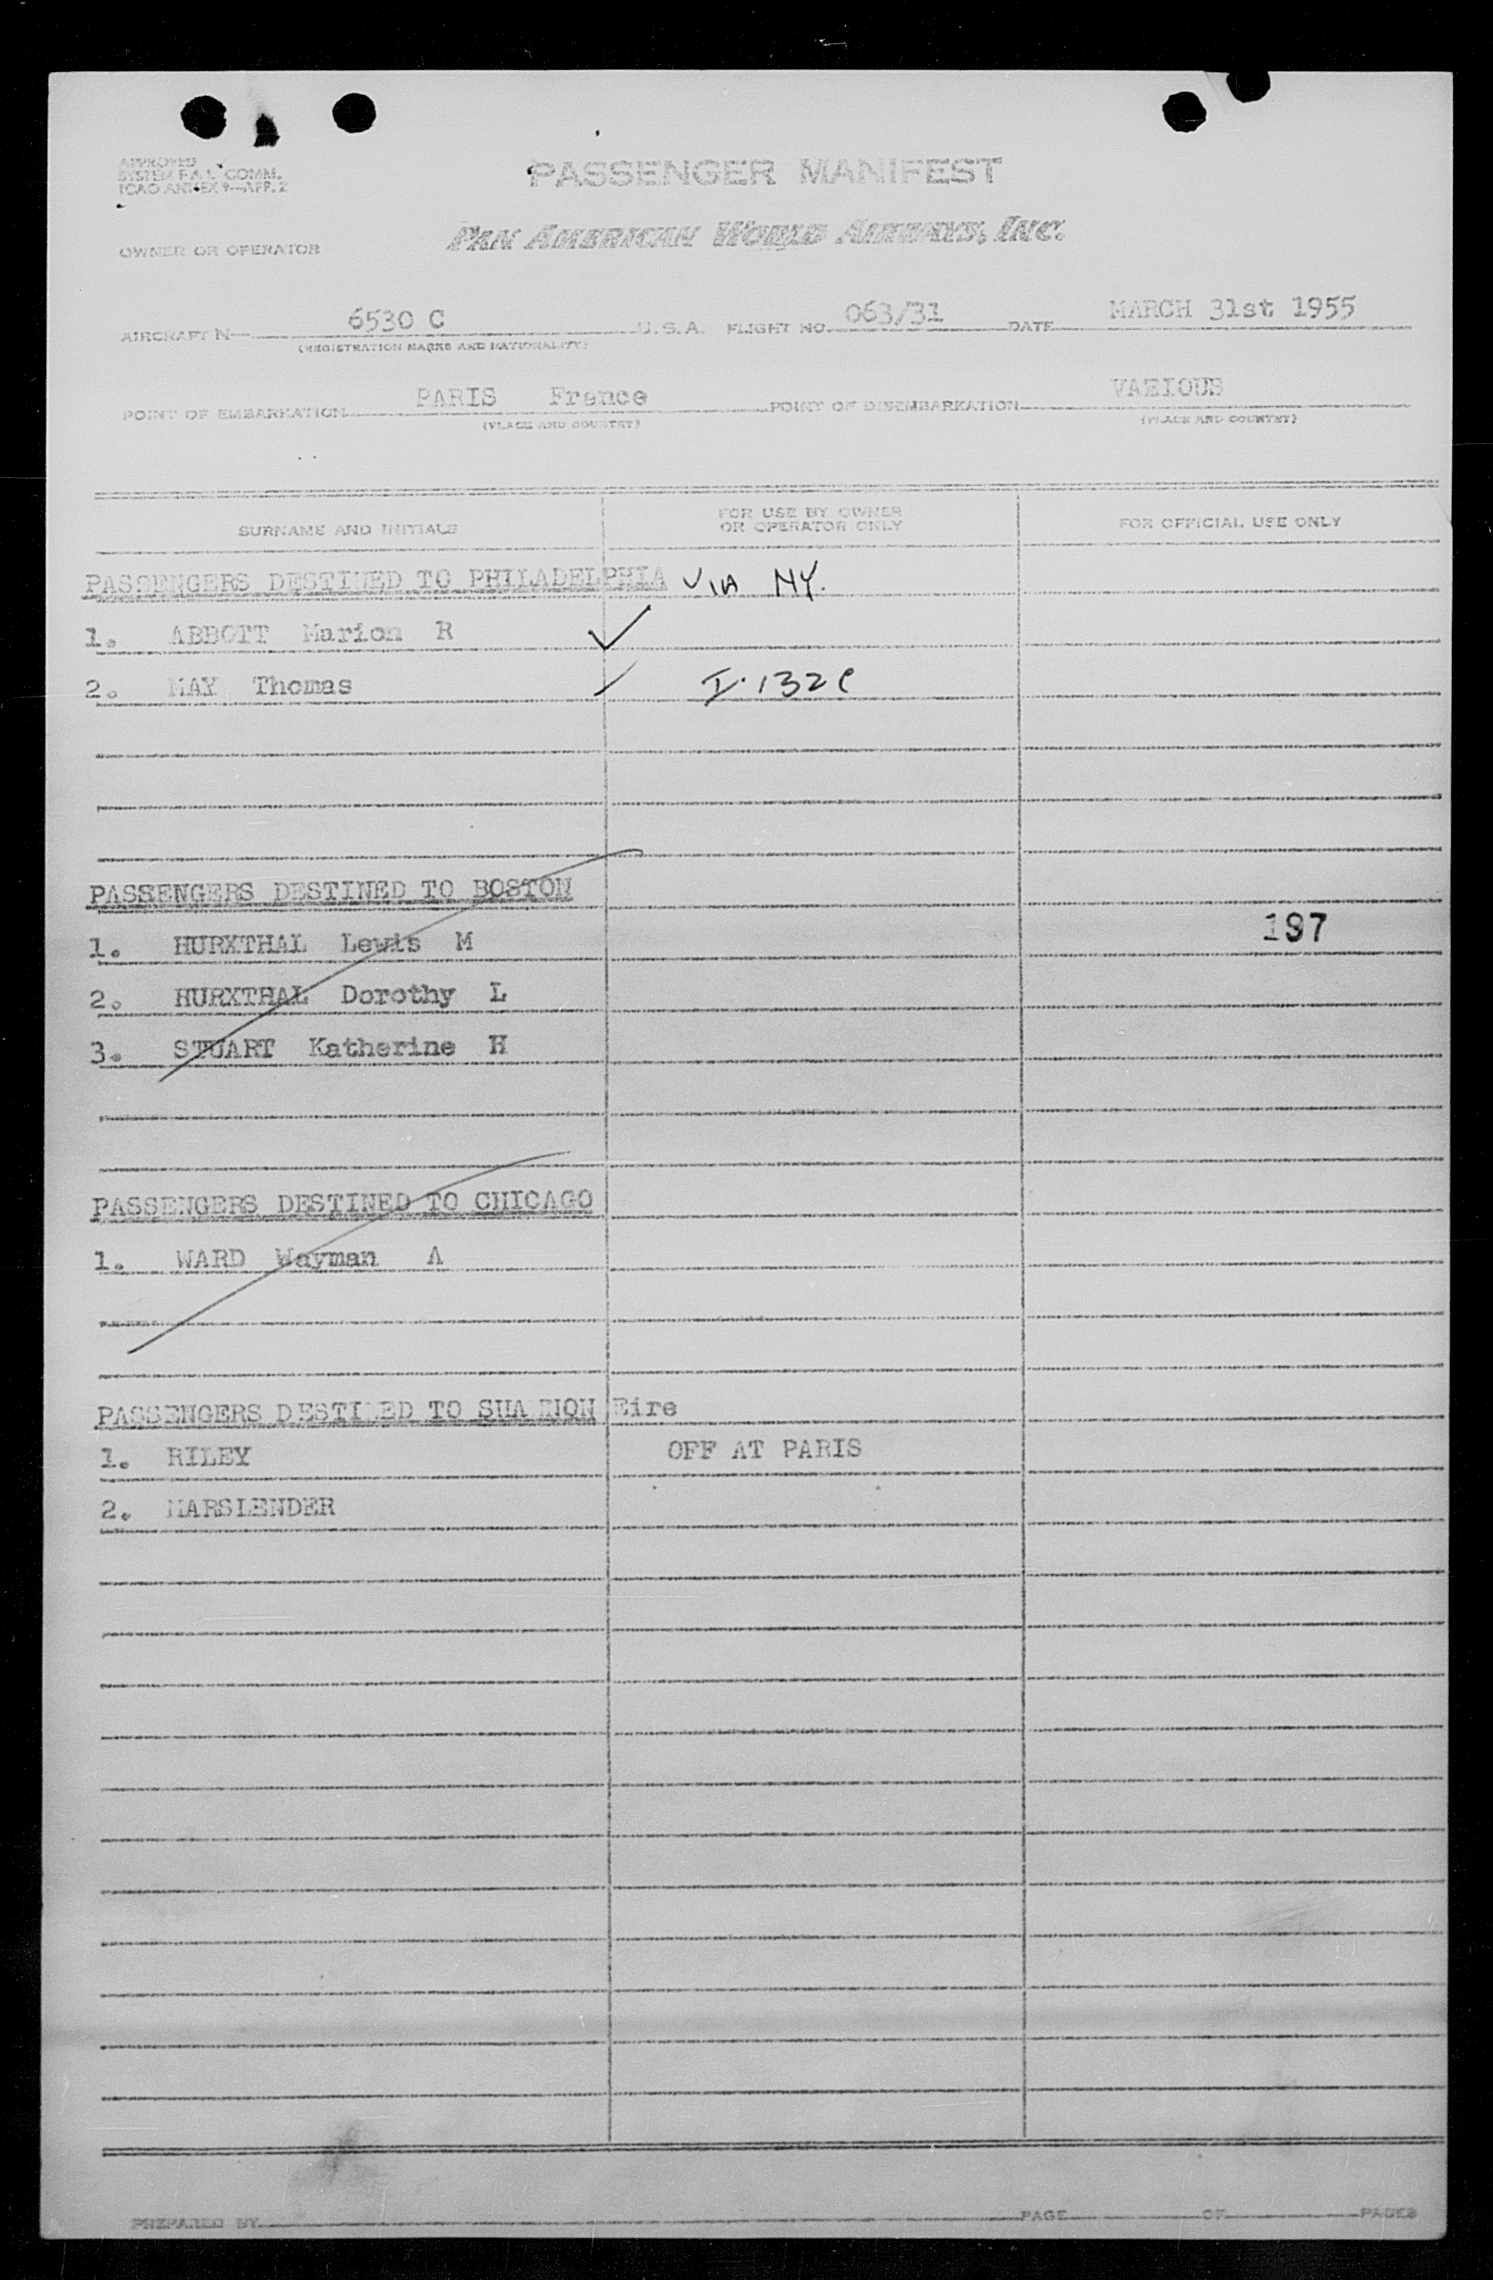 APPROVED
SYSTEM F.A.L. COMM.
ICAO ANNEX 9—APP. 2
PASSENGER MANIFEST
OWNER OR OPERATOR PAN AMERICAN WORLD AIRWAYS, INC.
AIRCRAFT N— 6530 C U.S.A. FLIGHT NO. 063/31 DATE MARCH 31st 1955
(REGISTRATION MARKS AND NATIONALITY)
POINT OF EMBARKATION PARIS France POINT OF DISEMBARKATION VARIOUS
(PLACE AND COUNTRY) (PLACE AND COUNTRY)
SURNAME AND INITIALS FOR USE BY OWNER OR OPERATOR ONLY FOR OFFICIAL USE ONLY
PASSENGERS DESTINED TO PHILADELPHIA VIA NY.
1. ABBOTT Marion R
2. MAY Thomas I.132
PASSENGERS DESTINED TO BOSTON
197
1. HURXTHAL Lewis M
2. HURXTHAL Dorothy L
3. STUART Katherine H
PASSENGERS DESTINED TO CHICAGO
1. WARD Wayman A
PASSENGERS DESTINED TO SHANNON Eire
1. RILEY OFF AT PARIS
2. MARSLENDER
PREPARED BY PAGE OF PAGES